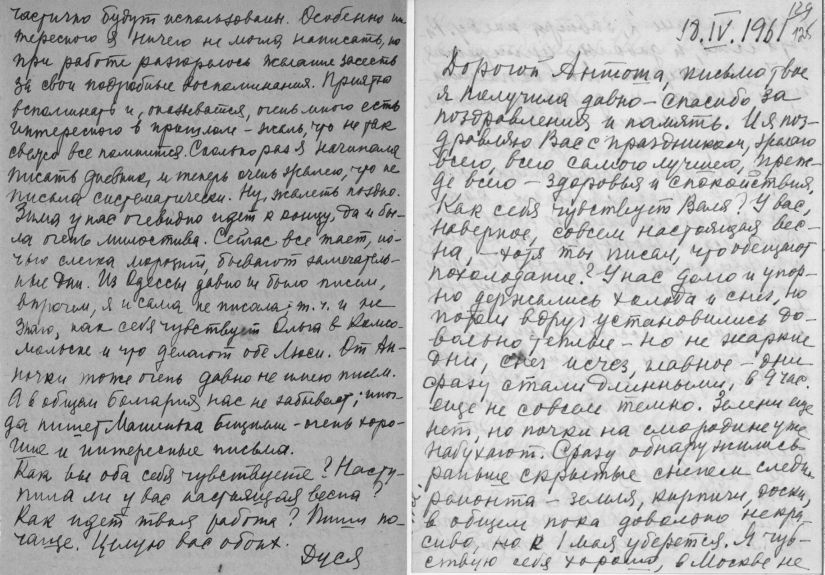 частично будут использованы. Особенно ин-
тересного я ничего не могла написать, но
при работе разгорелось желание засесть
за свои подробные воспоминания. Приятно
вспоминать и, оказывается, очень много есть
интересного в прошлом – жаль, что не так
свежо все помнится. Сколько раз я начинала
писать дневник, и теперь очень жалею, что не
писала систематически. Ну, жалеть поздно.
Зима у нас очевидно идет к концу, да и бы-
ла очень милостива. Сейчас все тает, но-
чью слегка морозит, бывают замечатель-
ные дни. Из Одессы давно не было писем,
впрочем, я и сама не писала, т. ч. и не
знаю, как себя чувствует Ольга в Комсо-
мольске и что делают обе Люси. От Ан-
ночки тоже очень давно не имею писем.
А в общем Болгария нас не забывает; иног-
да пишет Машинька – очень хоро-
шие и интересные письма.
Как вы оба себя чувствуете? Насту-
пила ли у вас настоящая весна?
Как идет твоя работа? Пиши по-
чаще. Целую вас обоих.
Дуся
129
126
18.IV.1961
Дорогой Антоша, письмо твое
я получила давно – спасибо за
поздравления и память. И я поз-
дравляю Вас с праздником, желаю
всего, всего самого лучшего, преж-
де всего – здоровья и спокойствия.
Как себя чувствует Валя? У вас,
наверное, совсем настоящая вес-
на, – хотя ты писал, что обещают
похолодание? У нас долго и упор-
но держались холода и снег, но
потом вдруг установились до-
вольно теплые – но не жаркие
дни, снег исчез, главное – дни
сразу стали длинными, в 9 час.
еще не совсем темно. Зелени еще
нет, но почки на смородине уже
набухают. Сразу обнаружились
раньше скрытые снегом следы
ремонта – земля, кирпичи, доски,
в общем пока довольно некра-
сиво, но к 1 мая уберется. Я чув-
ствую себя хорошо, в Москве не